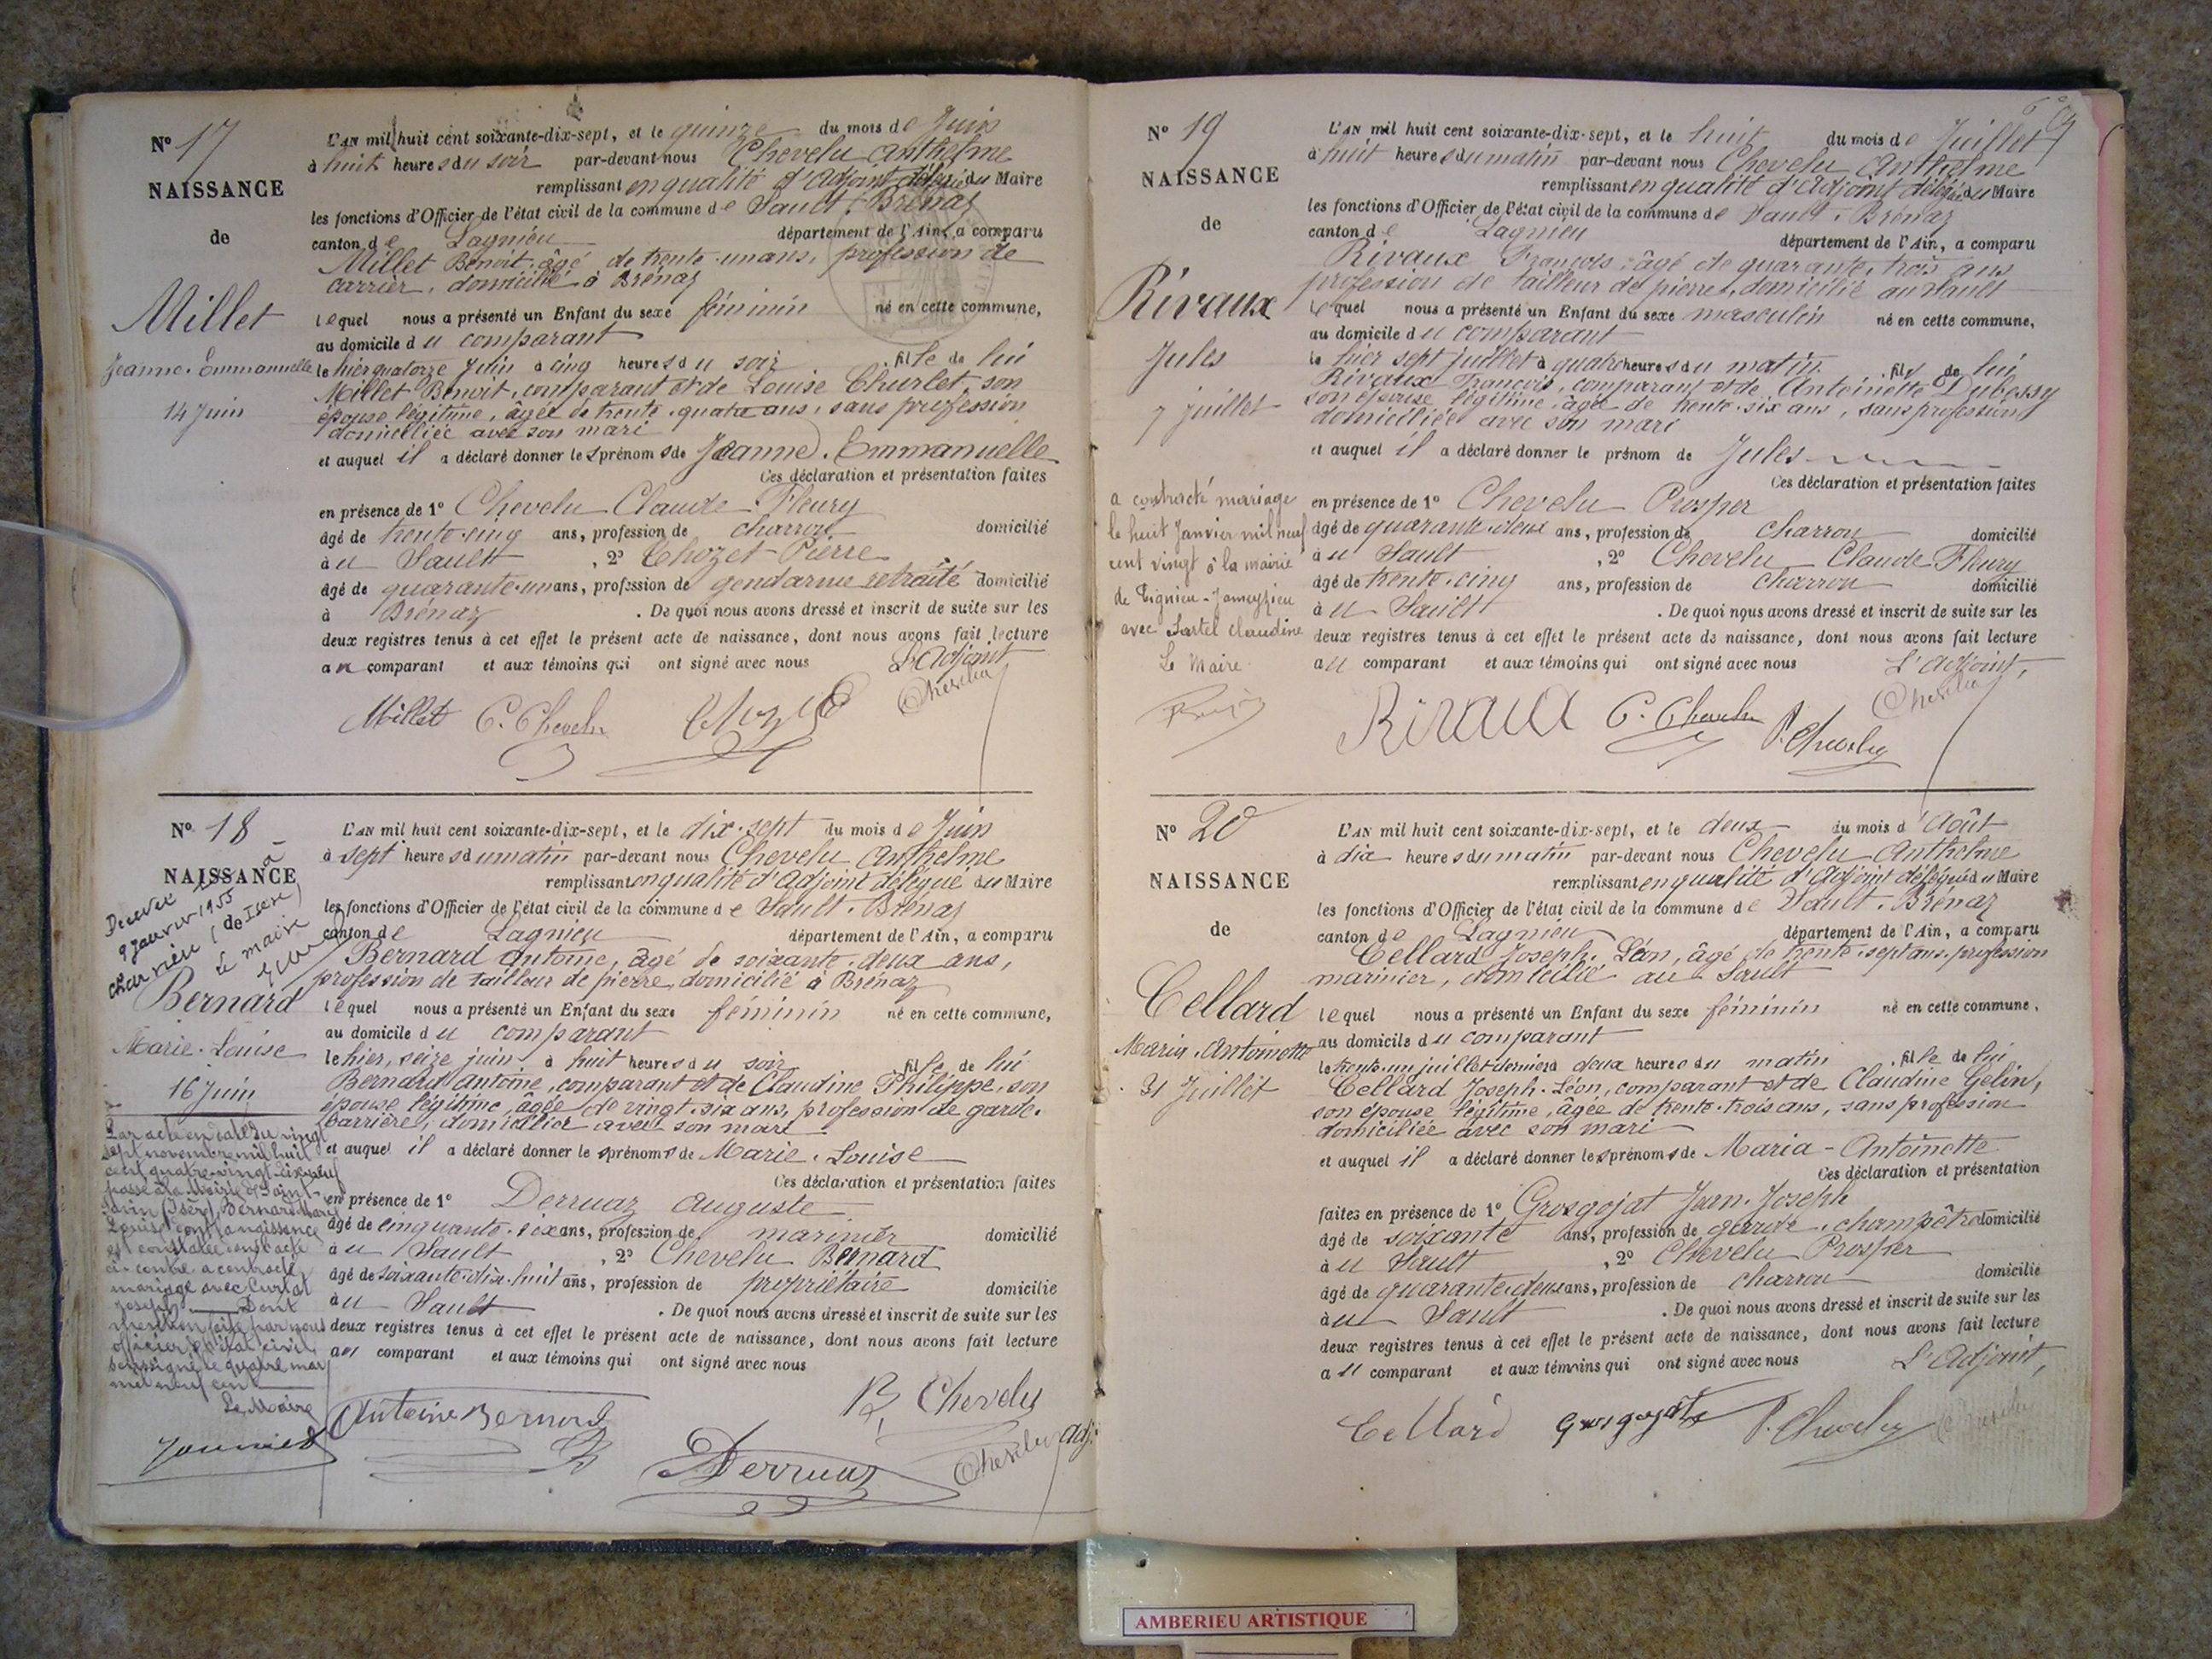 N° 17
NAISSANCE
de
Millet
Jeanne-Emmanuelle
14 Juin
L'AN mil huit cent soixante-dix-sept, et le quinze du mois de Juin
à huit heures du soir par-devant nous Chevelu Anthelme
remplissant en qualité d'Adjoint délégué du Maire
les fonctions d'Officier de l'état civil de la commune de Sault-Brénaz
canton de Lagnieu département de l'Ain, a comparu
Millet Benoit, âgé de trente-un ans, profession de
carrier, domicilié à Brénaz
lequel nous a présenté un Enfant du sexe féminin né en cette commune,
au domicile du comparant
le hier quatorze Juin à cinq heures du soir fille de lui
Millet Benoit, comparant et de Louise Churlet, son
épouse légitime, âgée de trente-quatre ans, sans profession
domiciliée avec son mari
et auquel il a déclaré donner les prénoms de Jeanne-Emmanuelle
Ces déclaration et présentation faites
en présence de 1° Chevelu Claude Fleury
âgé de trente-cinq ans, profession de charron domicilié
à u Sault, 2° Chozet Pierre
âgé de quarante-un ans, profession de gendarme retraité domicilié
à Brénaz. De quoi nous avons dressé et inscrit de suite sur les
deux registres tenus à cet effet le présent acte de naissance, dont nous avons fait lecture
au comparant et aux témoins qui ont signé avec nous L'Adjoint
Millet C. Chevelu Chozet Chevelu
N° 18
NAISSANCE
Décédée à
9 Janvier 1955
(de Isère)
Le maire
Bernard
Marie-Louise
16 Juin
Par acte en date du vingt
sept novembre mil huit
cent quatre-vingt-dix-neuf
passé à la Mairie de Saint-
(Isère), Bernard Marie
Louise dont la naissance
est constatée dans l'acte
ci-contre a contracté
mariage avec Curlat
Joseph Dont
mention faite par nous
officier d'état civil
soussigné le quatre mars
mil neuf cent
Le Maire
L'AN mil huit cent soixante-dix-sept, et le dix-sept du mois de Juin
à sept heures du matin par-devant nous Chevelu Anthelme
remplissant en qualité d'Adjoint délégué du Maire
les fonctions d'Officier de l'état civil de la commune de Sault-Brénaz
canton de Lagnieu département de l'Ain, a comparu
Bernard Antoine, âgé de soixante-deux ans,
profession de tailleur de pierre, domicilié à Brénaz
lequel nous a présenté un Enfant du sexe féminin né en cette commune,
au domicile du comparant
le hier, seize juin à huit heures du soir fille de lui
Bernard Antoine, comparant et de Claudine Philippe, son
épouse légitime, âgée de vingt-six ans, profession de garde-
barrière, domiciliée avec son mari
et auquel il a déclaré donner les prénoms de Marie-Louise
Ces déclaration et présentation faites
en présence de 1° Derruaz Auguste
âgé de cinquante-six ans, profession de marinier domicilié
à u Sault, 2° Chevelu Bernard
âgé de soixante-dix-huit ans, profession de propriétaire domicilié
à u Sault. De quoi nous avons dressé et inscrit de suite sur les
deux registres tenus à cet effet le présent acte de naissance, dont nous avons fait lecture
au comparant et aux témoins qui ont signé avec nous
B. Chevelu
Antoine Bernard
Derruaz Chevelu adj.
N° 19
NAISSANCE
de
Rivaux
Jules
7 Juillet
a contracté mariage
le huit Janvier mil neuf
cent vingt à la mairie
de Tignieu-Jameyzieu
avec Sartel Claudine
Le Maire
L'AN mil huit cent soixante-dix-sept, et le huit du mois de Juillet
à huit heures du matin par-devant nous Chevelu Anthelme
remplissant en qualité d'Adjoint délégué du Maire
les fonctions d'Officier de l'état civil de la commune de Sault-Brénaz
canton de Lagnieu département de l'Ain, a comparu
Rivaux François, âgé de quarante-trois ans
profession de tailleur de pierres, domicilié au Sault
lequel nous a présenté un Enfant du sexe masculin né en cette commune,
au domicile du comparant
le hier sept juillet à quatre heures du matin, fils de lui
Rivaux François, comparant et de Antoinette Dubessy
son épouse légitime, âgée de trente-six ans, sans profession
domiciliée avec son mari
et auquel il a déclaré donner le prénom de Jules
Ces déclaration et présentation faites
en présence de 1° Chevelu Prosper
âgé de quarante-deux ans, profession de charron domicilié
à u Sault, 2° Chevelu Claude Fleury
âgé de trente-cinq ans, profession de charron domicilié
à u Sault. De quoi nous avons dressé et inscrit de suite sur les
deux registres tenus à cet effet le présent acte de naissance, dont nous avons fait lecture
au comparant et aux témoins qui ont signé avec nous L'Adjoint,
Rivaux C. Chevelu P. Chevelu Chevelu
N° 20
NAISSANCE
de
Cellard
Maria-Antoinette
31 Juillet
L'AN mil huit cent soixante-dix-sept, et le deux du mois d'Août
à dix heures du matin par-devant nous Chevelu Anthelme
remplissant en qualité d'Adjoint délégué du Maire
les fonctions d'Officier de l'état civil de la commune de Sault-Brénaz
canton de Lagnieu département de l'Ain, a comparu
Cellard Joseph-Léon, âgé de trente-sept ans, profession
marinier, domicilié au Sault
lequel nous a présenté un Enfant du sexe féminin né en cette commune,
au domicile du comparant
le trente-un juillet dernier à deux heures du matin, fille de lui
Cellard Joseph-Léon, comparant et de Claudine Gelin,
son épouse légitime, âgée de trente-trois ans, sans profession
domiciliée avec son mari
et auquel il a déclaré donner les prénoms de Maria-Antoinette
Ces déclaration et présentation
faites en présence de 1° Grosgojat Jean-Joseph
âgé de soixante ans, profession de garde-champêtre domicilié
à u Sault, 2° Chevelu Prosper
âgé de quarante-deux ans, profession de charron domicilié
à u Sault. De quoi nous avons dressé et inscrit de suite sur les
deux registres tenus à cet effet le présent acte de naissance, dont nous avons fait lecture
au comparant et aux témoins qui ont signé avec nous L'Adjoint,
Cellard Grosgojat P. Chevelu Chevelu
AMBERIEU ARTISTIQUE